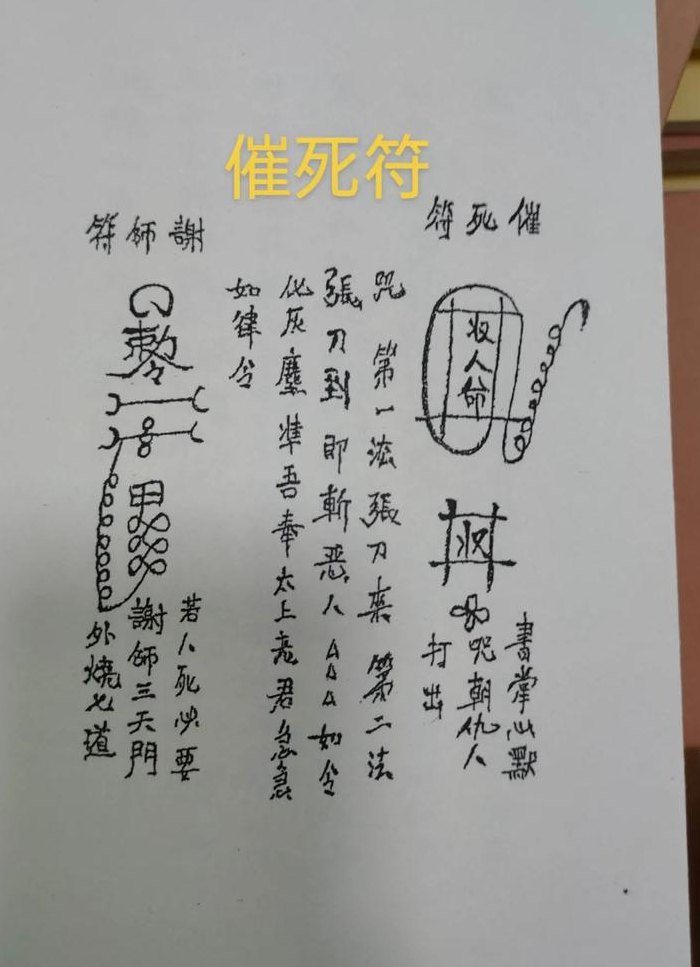 催死符
催死符
收人命
收
書掌心默
咒朝仇人
打出
咒 第一法張刀來 第二法
張刀到即斬惡人△△△如令
化灰塵準吾奉太上老君急急
如律令
謝師符
敕令
若人死必要
謝師三天門
外燒七道